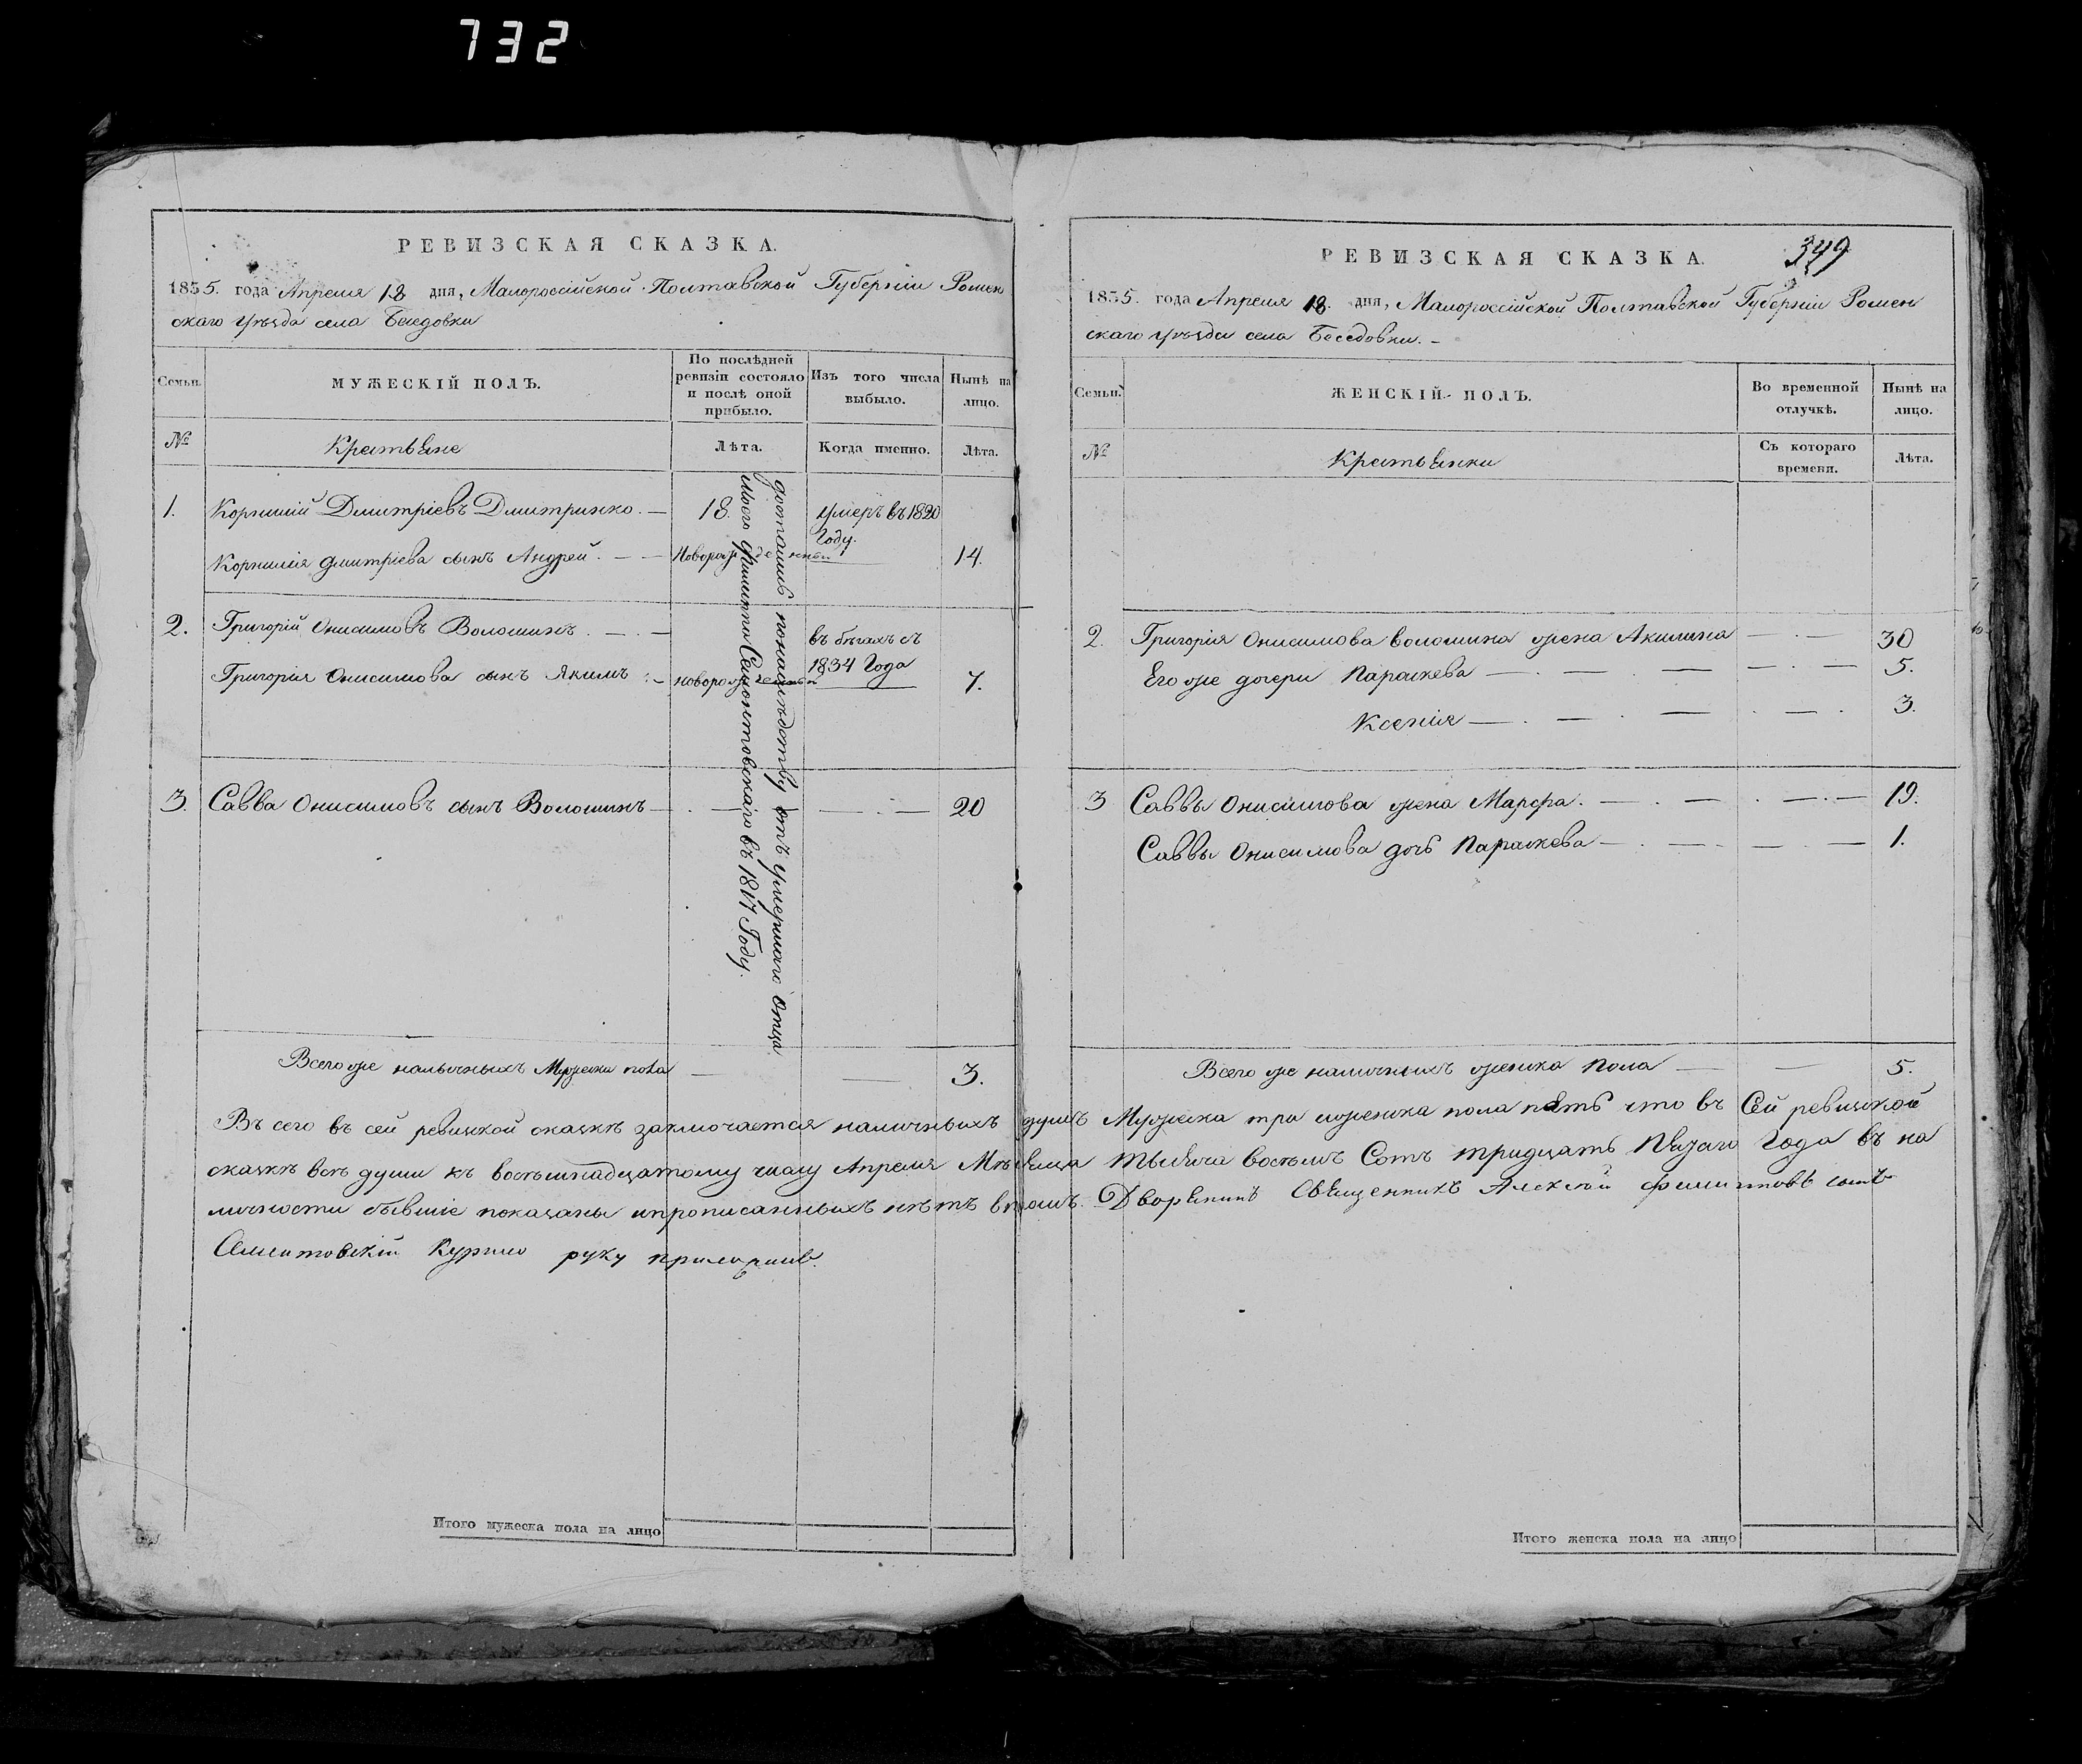 732
РЕВИЗСКАЯ СКАЗКА.
1835. года Апреля 18 дня, Малороссійской Полтавской Губерніи Ромен
скаго уѣзда села Беседовки
Семьи.
МУЖЕСКІЙ ПОЛЪ.
По послѣдней
ревизіи состояло
и послѣ оной
прибыло.
Изъ того числа
выбыло.
Нынѣ на
лицо.
№
Крестьяне
Лѣта.
Когда именно.
Лѣта.
1. Корнилій Дмитріевъ Дмитринко. — 18. умеръ въ 1820
Году.
Корнилія дмитріева сынъ Андрей. — — Новорожденный 14.
2. Григорій Онисимовъ Волошинъ. — . — въ бѣгахъ съ
1834 Года
Григорія Онисимова сынъ Якимъ : — новорожденный 7.
3. Савва Онисимовъ сынъ Волошинъ — . — — . — 20
достались по наслѣдству отъ умершаго Отца
моего Филипа Самонтовскаго въ 1817 Году.
Всего же наличныхъ Мужеска пола — — 3.
РЕВИЗСКАЯ СКАЗКА.
349
1835. года Апреля 18. дня, Малороссійской Полтавской Губерніи Ромен
скаго уѣзда села Беседовки. —
Семьи.
ЖЕНСКІЙ ПОЛЪ.
Во временной
отлучкѣ.
Нынѣ на
лицо.
№
Крестьянки
Съ котораго
времени.
Лѣта.
2. Григорія Онисимова волошина жена Акилина — . — 30
Его же дочери Параскева — . — . — — . — 5.
Ксенія — . — . — . — . 3.
3 Саввы Онисимова жена Марфа. — . — . — . — 19.
Саввы Онисимова дочь Параскева — . — . — — 1.
Всего же наличныхъ женска пола — — 5.
Въ сего въ сей ревизкой сказкѣ заключается наличныхъ душъ Мужеска три и женска пола пять что въ Сей ревизкой
сказкѣ всѣ души къ восьмнадцатому числу Апреля Мѣсяца тысяча восемъ Сотъ тридцать Пятаго Года въ на
личности бывшіе показаны и прописанныхъ нѣтъ в томъ Дворянинъ Священникъ Алексѣй Филиповъ сынъ
руку приложилъ.
Итого мужеска пола на лицо
Итого женска пола на лицо